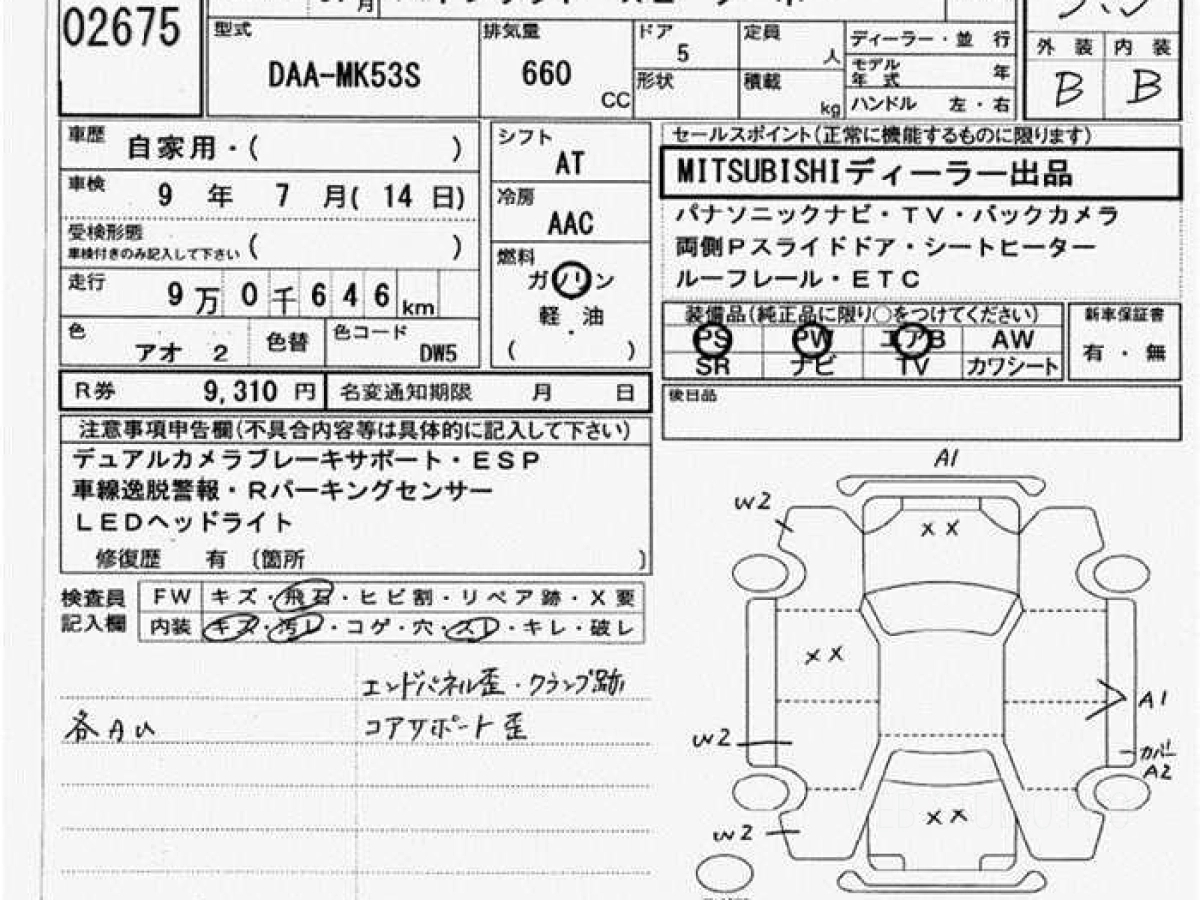 02675
月
型式
DAA-MK53S
排気量
660
CC
ドア
5
形状
定員
人
積載
kg
ディーラー・並 行
モデル年式 年
ハンドル 左・右
外 装 内 装
B B
車歴 自家用・( )
車検 9 年 7 月( 14 日)
受検形態
車検付きのみ記入して下さい ( )
走行 9 万 0 千 6 4 6 km
色 アオ 2
色替
色コード DW5
シフト
AT
冷房
AAC
燃料
ガソリン
軽・油
( )
セールスポイント(正常に機能するものに限ります)
MITSUBISHIディーラー出品
パナソニックナビ・TV・バックカメラ
両側Pスライドドア・シートヒーター
ルーフレール・ETC
装備品(純正品に限り○をつけてください)
PS PW エアB AW
SR ナビ TV カワシート
新車保証書
有・無
R券 9,310 円
名変通知期限 月 日
後日品
注意事項申告欄(不具合内容等は具体的に記入して下さい)
デュアルカメラブレーキサポート・ESP
車線逸脱警報・Rパーキングセンサー
LEDヘッドライト
修復歴 有 (箇所 )
検査員
記入欄
FW キズ・飛石・ヒビ割・リペア跡・X要
内装 キズ・汚レ・コゲ・穴・スレ・キレ・破レ
エンドパネル歪・クランプ跡
各AU
コアサポート歪
A1
W2
XX
XX
A1
W2
カバー
A2
XX
W2